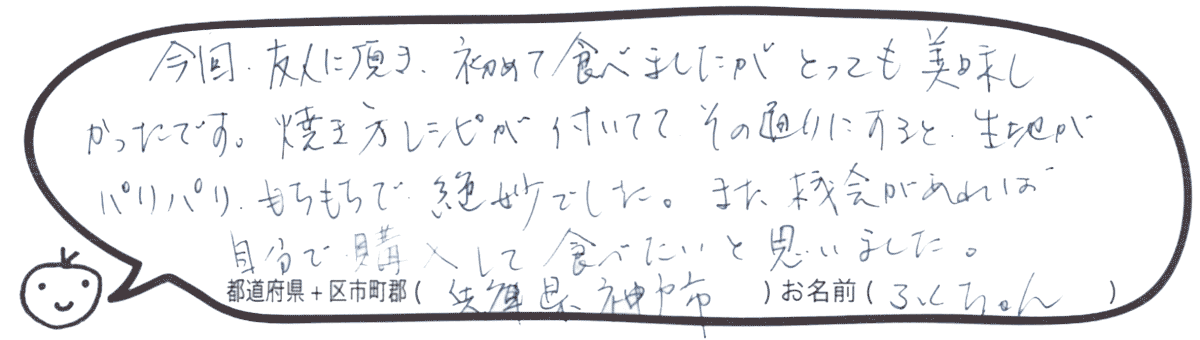 今回、友人に頂き、初めて食べましたが とっても 美味し
かったです。焼き方レシピが 付いてて その通りにすると、生地が
パリパリ、もちもちで 絶妙でした。また 機会があれば
自分で 購入して 食べたいと 思いました。
都道府県+区市町郡( 兵庫県、神戸市 )お名前( ふくちゃん )